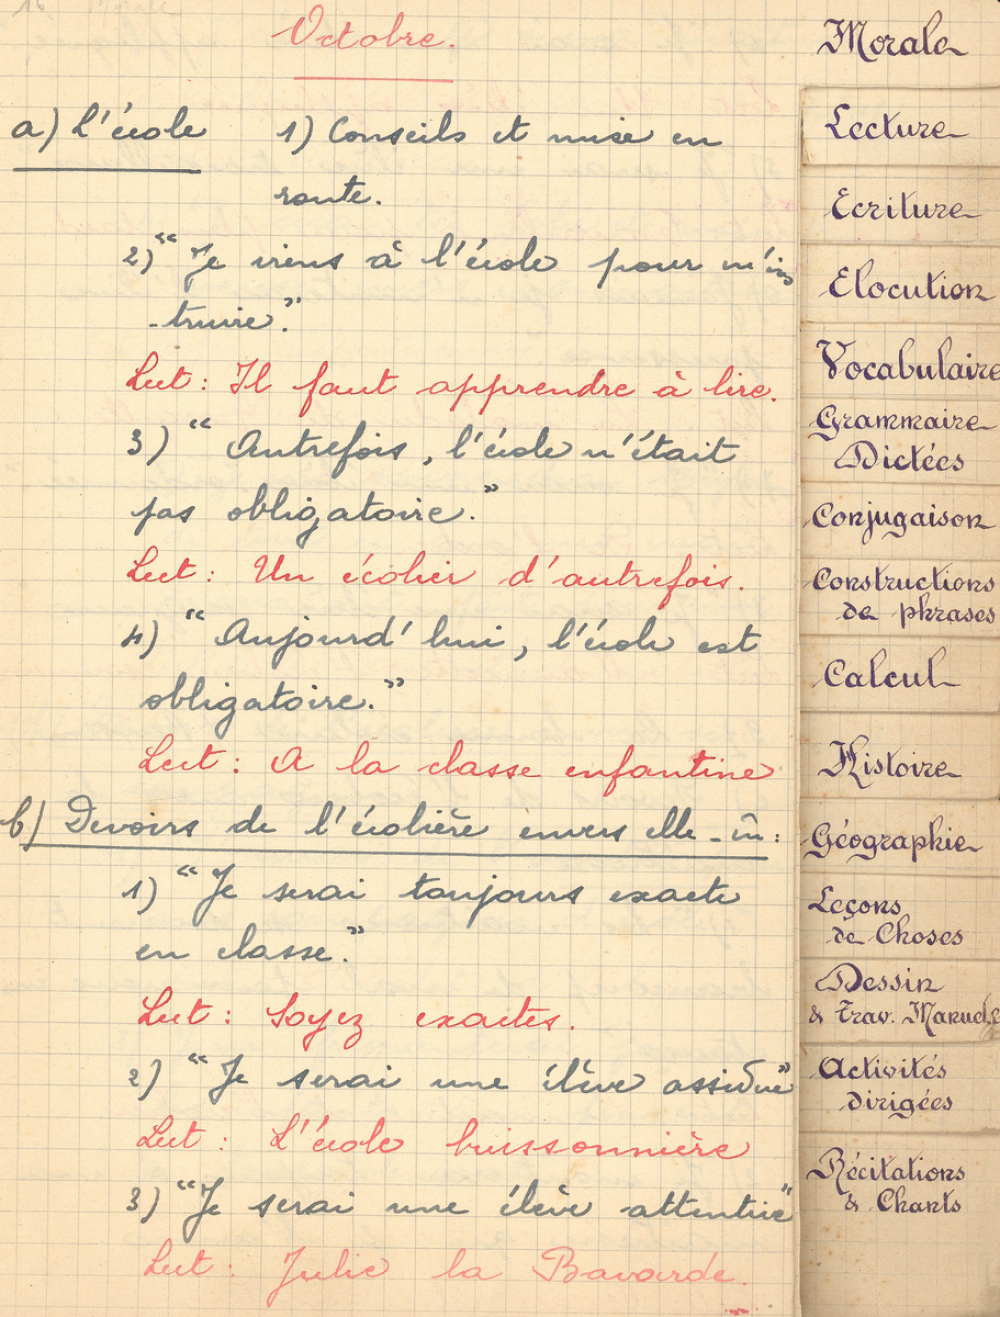 Octobre.
a) L'école 1) Conseils et mise en
route.
2) "Je viens à l'école pour m'ins
-truire."
Lect : Il faut apprendre à lire.
3) "Autrefois, l'école n'était
pas obligatoire."
Lect : Un écolier d'autrefois.
4) "Aujourd'hui, l'école est
obligatoire."
Lect : A la classe enfantine
b) Devoirs de l'écolière envers elle-m :
1) "Je serai toujours exacte
en classe."
Lect : Soyez exactes.
2) "Je serai une élève assidue"
Lect : L'école buissonnière
3) "Je serai une élève attentive"
Lect : Julie la Bavarde.
Morale
Lecture
Ecriture
Elocution
Vocabulaire
Grammaire
Dictées
Conjugaison
Constructions
de phrases
Calcul
Histoire
Géographie
Leçons
de Choses
Dessin
& Trav. Manuels
Activités
dirigées
Récitations
& Chants